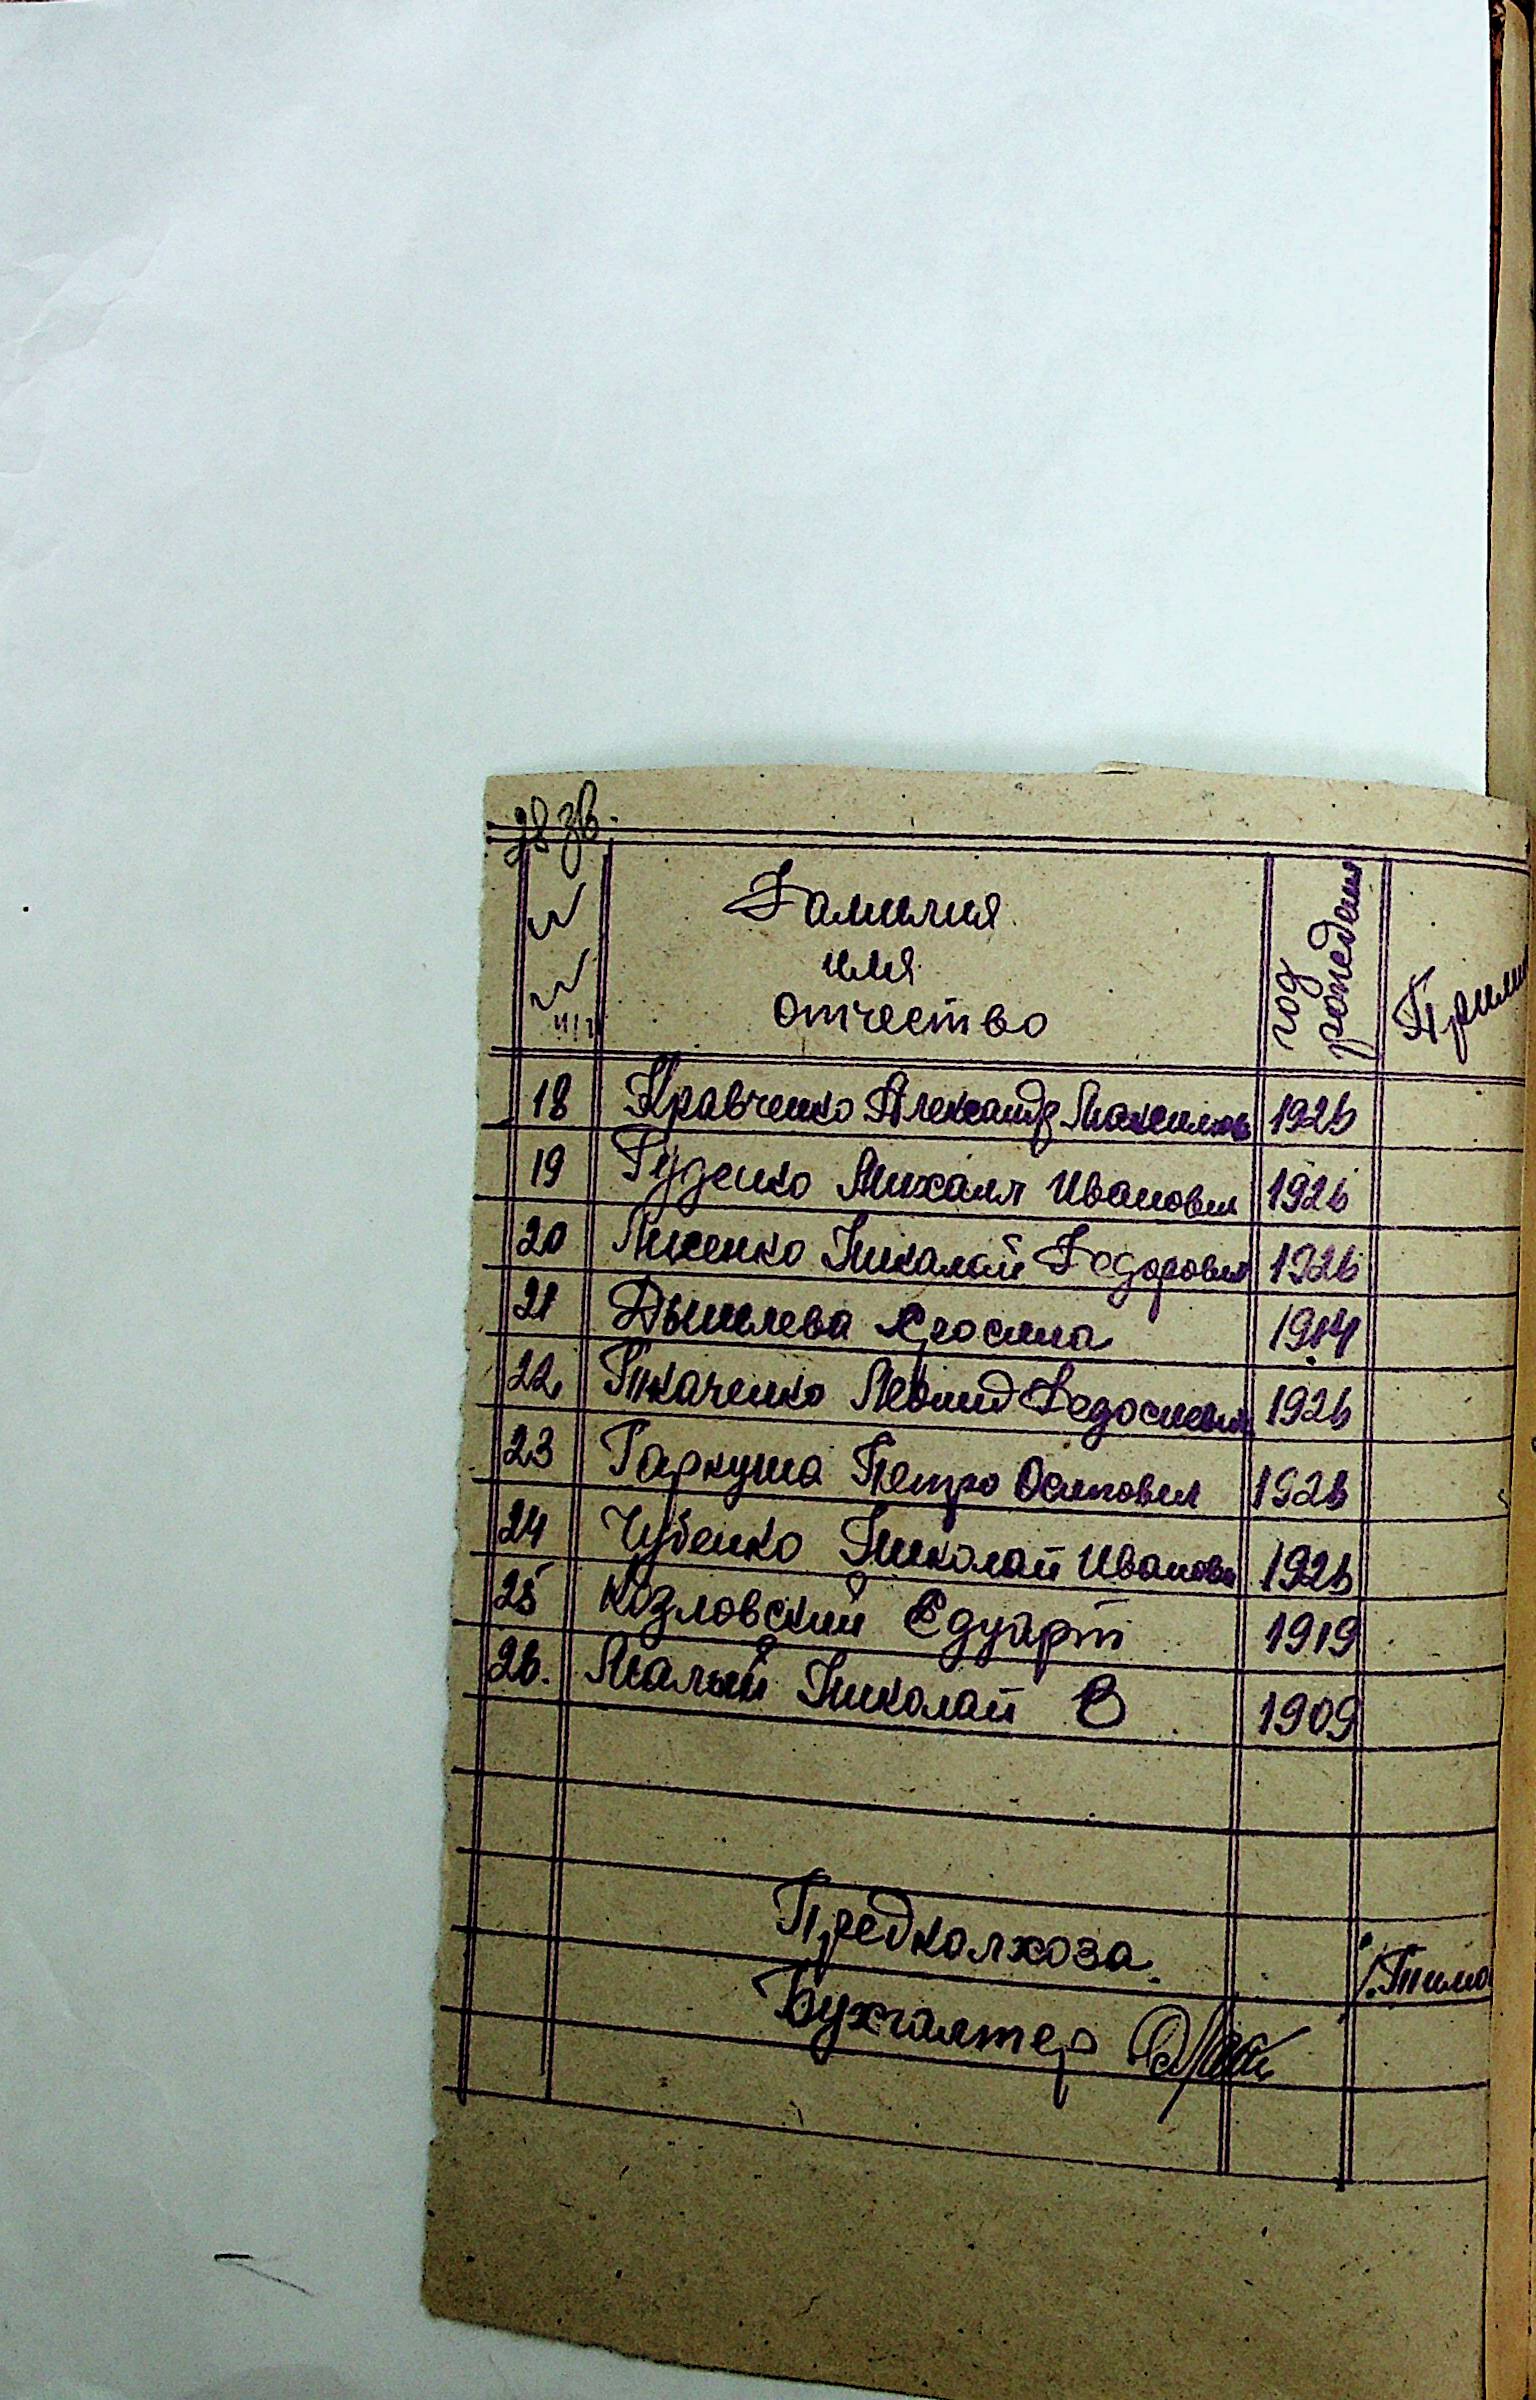 28 зв.
№ №
п/п
Фамилия
имя
отчество
год
рождения
Прим
18 Кравченко Александр Максимов 1926
19 Гуденко Михаил Иванович 1926
20 Лисенко Николай Федорович 1926
21 Дышлева 1914
22. Ткаченко Леонид Федосиевич 1926
23 Гаркуша Петро Осипович 1926
24 Чубенко Николай Иванови 1926
25 Козловский Едуарт 1919
26. Малый Николай В 1909
Предколхоза. /.Тимо
Бухгалтер